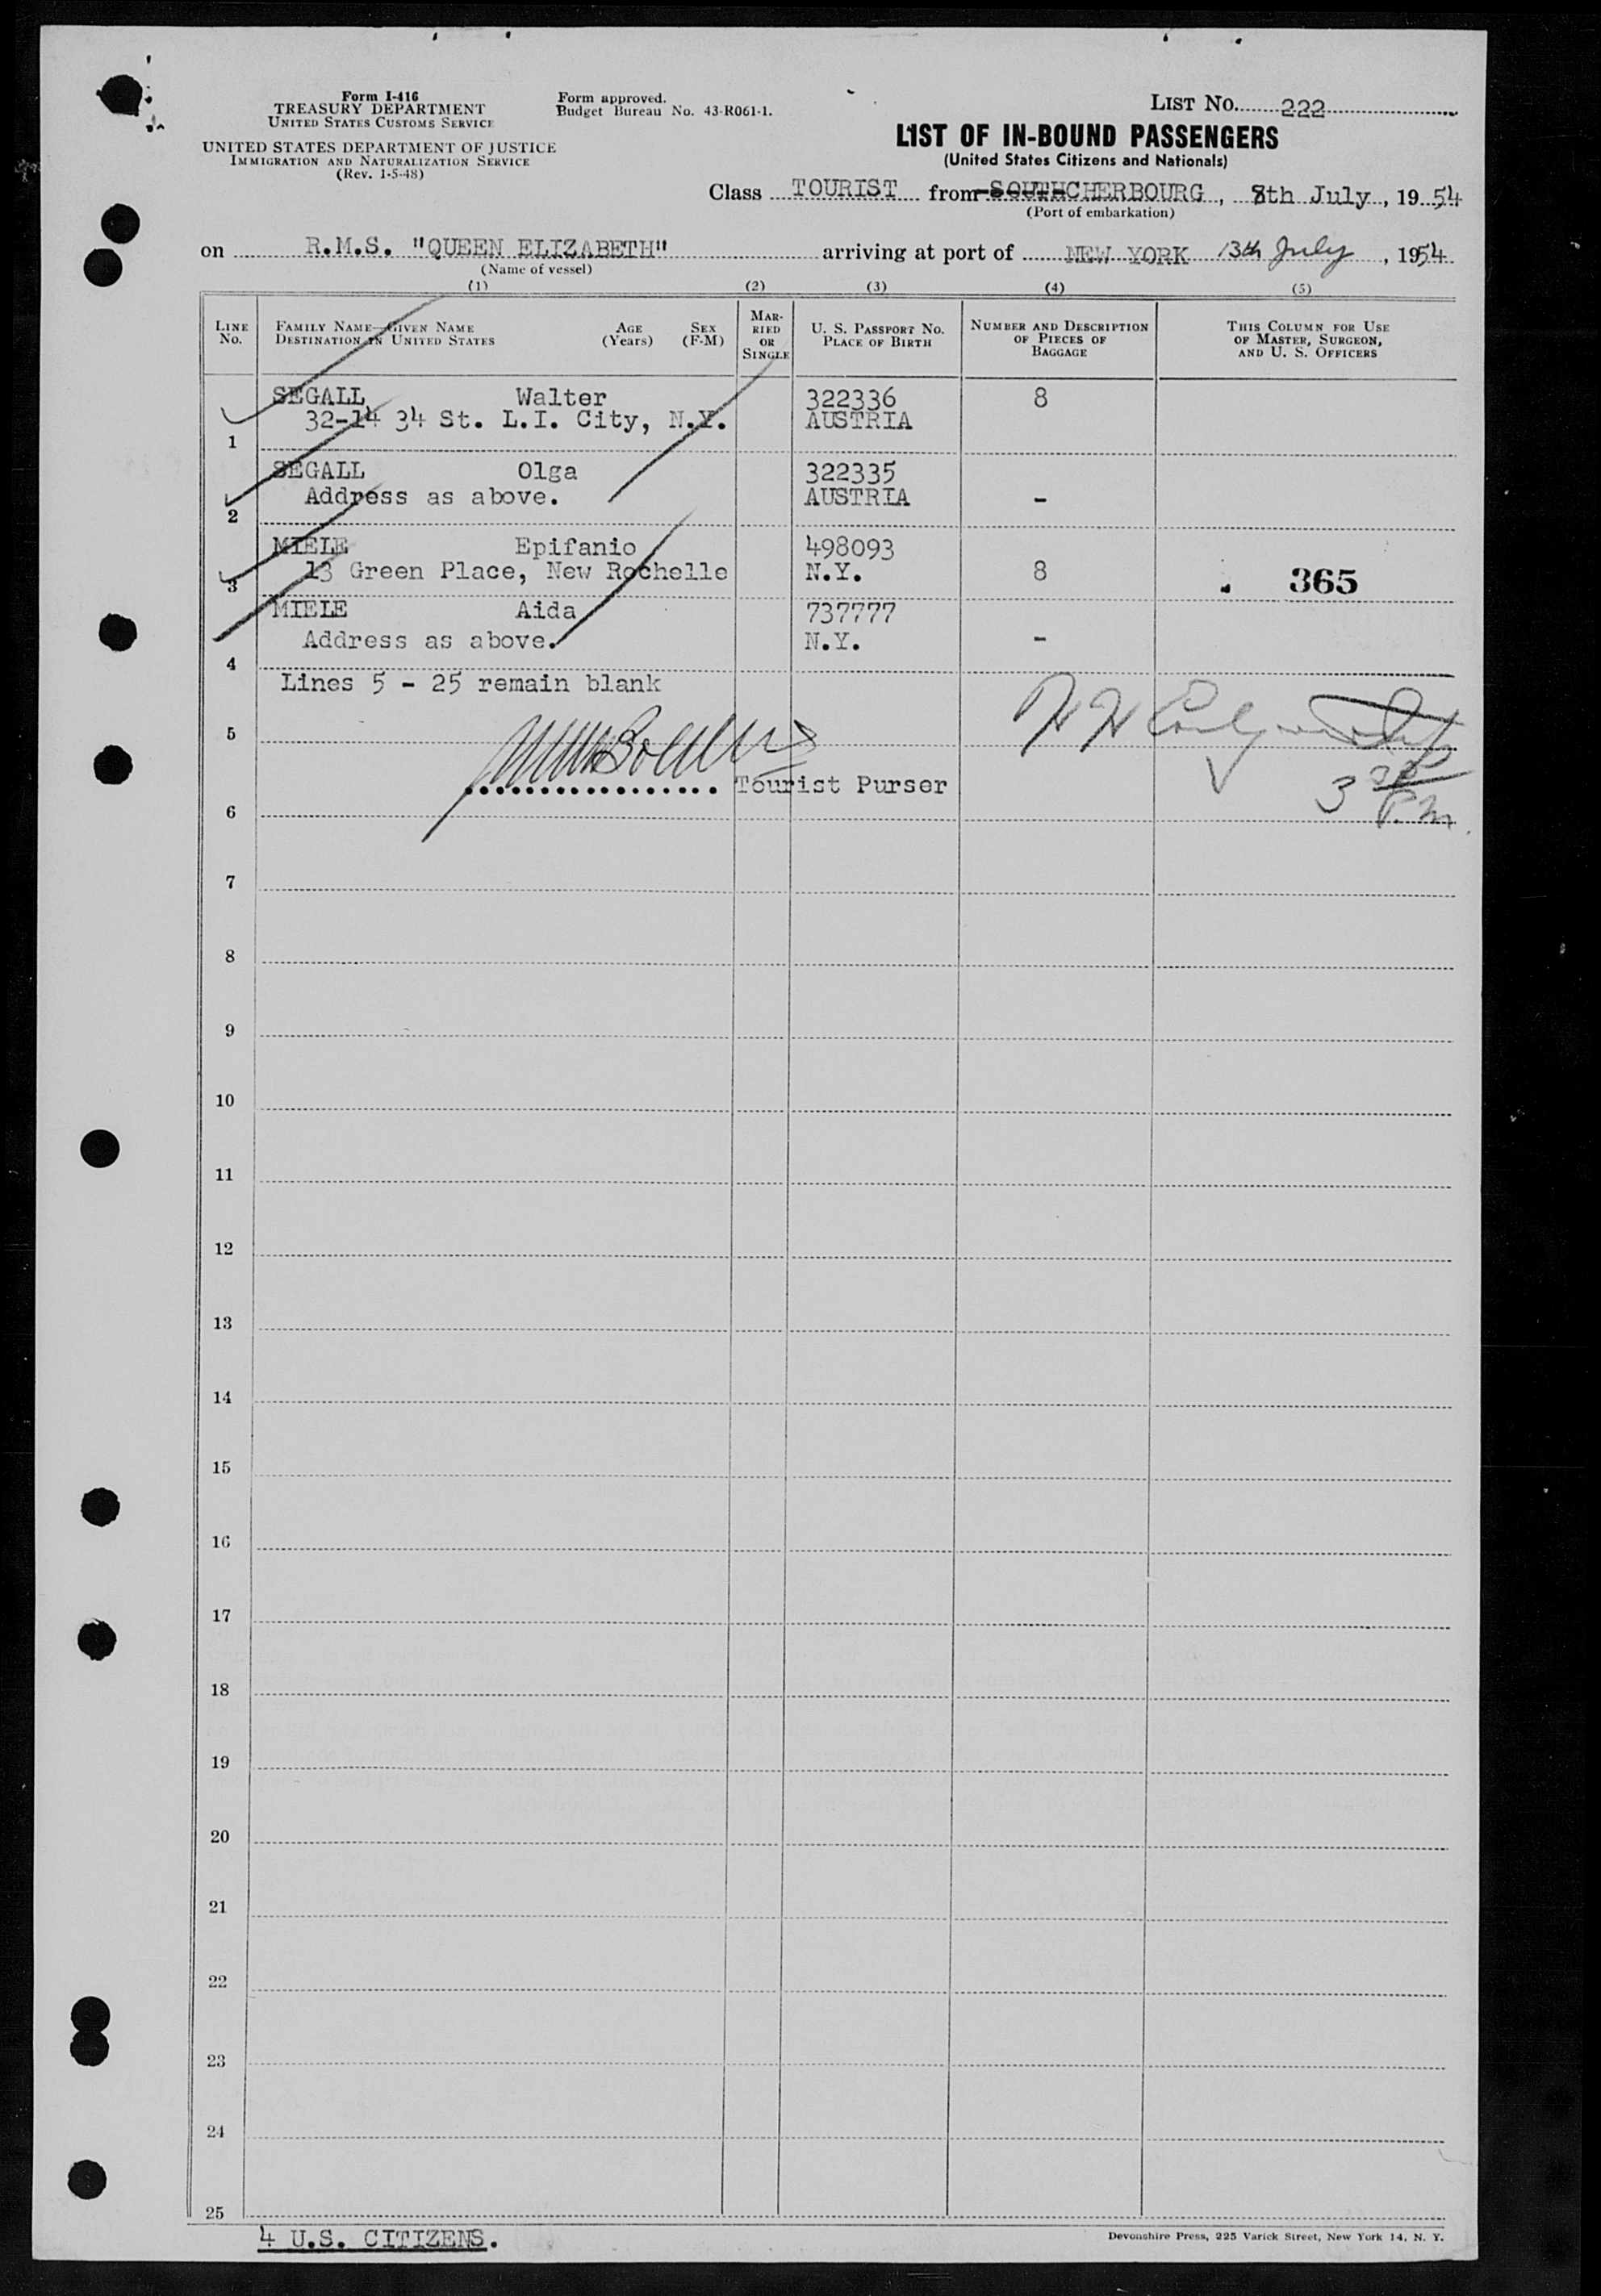 Form I-416
TREASURY DEPARTMENT
UNITED STATES CUSTOMS SERVICE
UNITED STATES DEPARTMENT OF JUSTICE
IMMIGRATION AND NATURALIZATION SERVICE
(Rev. 1-5-48)
Form approved.
Budget Bureau No. 43-R061-1.
LIST NO. 222
LIST OF IN-BOUND PASSENGERS
(United States Citizens and Nationals)
Class TOURIST from SOUTHCHERBOURG, 8th July, 1954
(Port of embarkation)
on R.M.S. "QUEEN ELIZABETH" arriving at port of NEW YORK 13th July, 1954
(Name of vessel)
(1) (2) (3) (4) (5)
LINE NO.
FAMILY NAME—GIVEN NAME
DESTINATION IN UNITED STATES
AGE (Years)
SEX (F-M)
MARRIED OR SINGLE
U. S. PASSPORT NO.
PLACE OF BIRTH
NUMBER AND DESCRIPTION
OF PIECES OF
BAGGAGE
THIS COLUMN FOR USE
OF MASTER, SURGEON,
AND U. S. OFFICERS
SEGALL Walter 322336 8
1 32-14 34 St. L.I. City, N.Y. AUSTRIA
SEGALL Olga 322335
2 Address as above. AUSTRIA -
MIELE Epifanio 498093
3 13 Green Place, New Rochelle N.Y. 8 365
MIELE Aida 737777
4 Address as above. N.Y. -
Lines 5 - 25 remain blank
5
Tourist Purser
3 30 P.M.
6
7
8
9
10
11
12
13
14
15
16
17
18
19
20
21
22
23
24
25
4 U.S. CITIZENS.
Devonshire Press, 225 Varick Street, New York 14, N. Y.